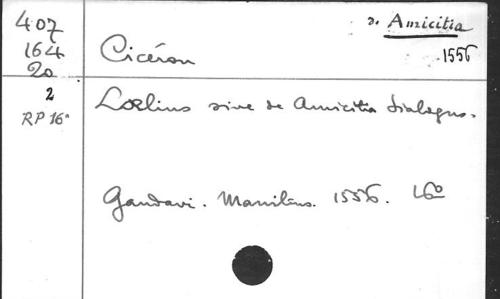 407
164
20
2
RP 16ª
de Amicitia
Cicéron
1556
Laelius sive de Amicitia dialogus.
Gandavi. Manilius. 1556. 16º